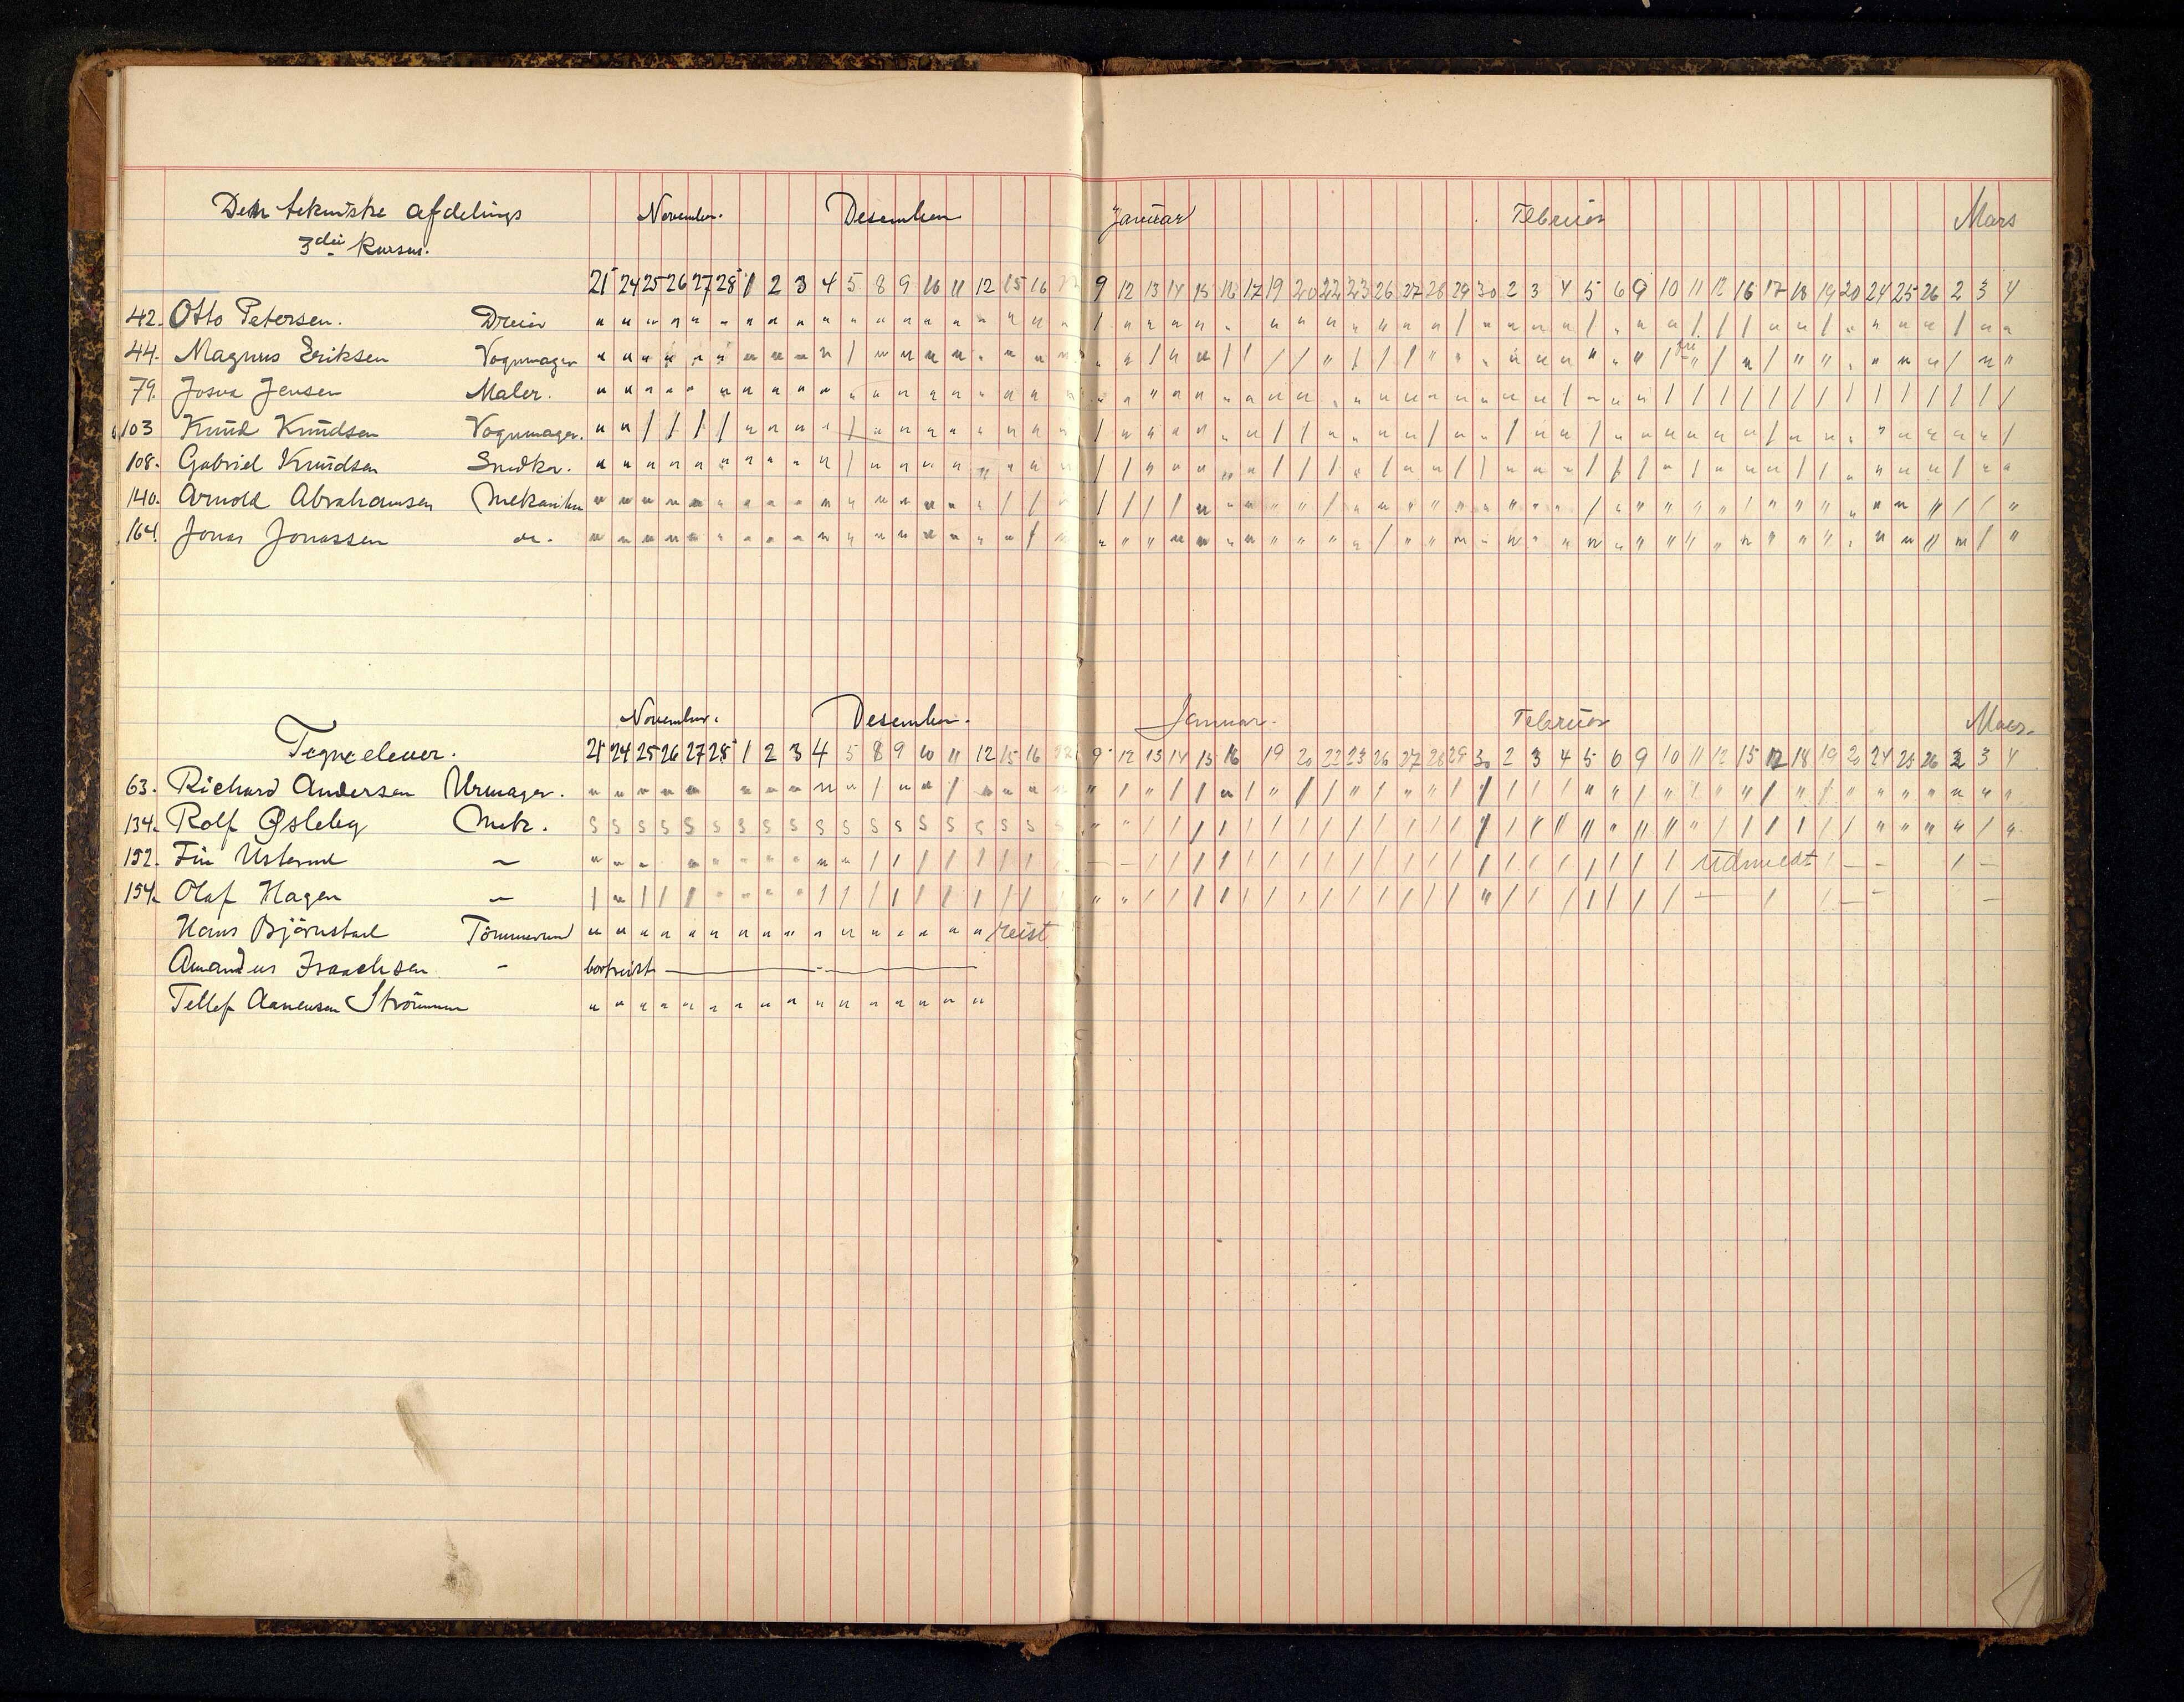 Den tekniske afdelings November. Desember Januar Februar Mars
3die Kursus.
21 24 25 26 27 28 1 2 3 4 5 8 9 10 11 12 15 16 9 12 13 14 15 16 17 19 20 22 23 26 27 28 29 30 2 3 4 5 6 9 10 11 12 16 17 18 19 20 24 25 26 2 3 4
42. Otto Petersen. Dreier
44. Magnus Eriksen Vognmager
fri
79. Josva Jensen Maler.
103 Knud Knudsen Vognmager.
108. Gabriel Knudsen Snedker.
140. Arnold Abrahamsen Mekaniker
164. Jonas Jonassen do.
November. Desember. Januar. Februar Mars.
Tegneelever. 21 24 25 26 27 28 1 2 3 4 5 8 9 10 11 12 15 16 9 12 13 14 15 16 19 20 22 23 26 27 28 29 30 2 3 4 5 6 9 10 11 12 15 17 18 19 20 24 25 26 2 3 4
63. Richard Andersen Urmager.
134. Rolf Mek. S S S S S S S S S S S S S S S S S S
152. Fin — udmeldt
154. Olaf Hagen —
Hans Björnstad Tömmermand reist
Amandus Isaachsen - bortreist
Tellef Aanensen Strömmen